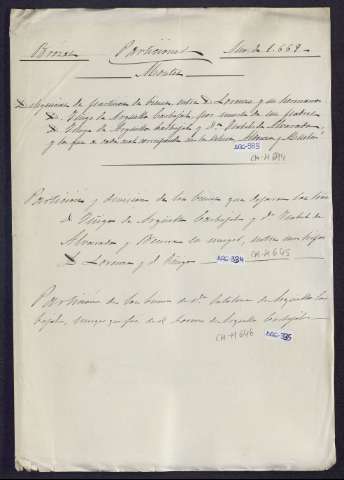 Brozas Particiones Año de 1.669
Montes
de particion de bienes, entre Dn Lorenzo y su hermano
Dn Diego de Arguello Carbajal, por muerte de sus padres
Dn Diego de Arguello Carbajal y Dª Isabel de Alvarado,
y lo que a cada uno correspondio en la dehesa
ARC-383
CH-H 644
Particion y division de los bienes que dejaron los Sres
Dn Diego de Arguello Carbajal y Dª Isabel de
Alvarado y su muger, entre sus hijos
Dn Lorenzo y Dn Diego
ARC-384 CH-H 645
Particion de los bienes de Dª Catalina de Arguello Car
bajal, muger que fue de Dn Lorenzo de Arguello Carbajal
CH-H 646 ARC-385